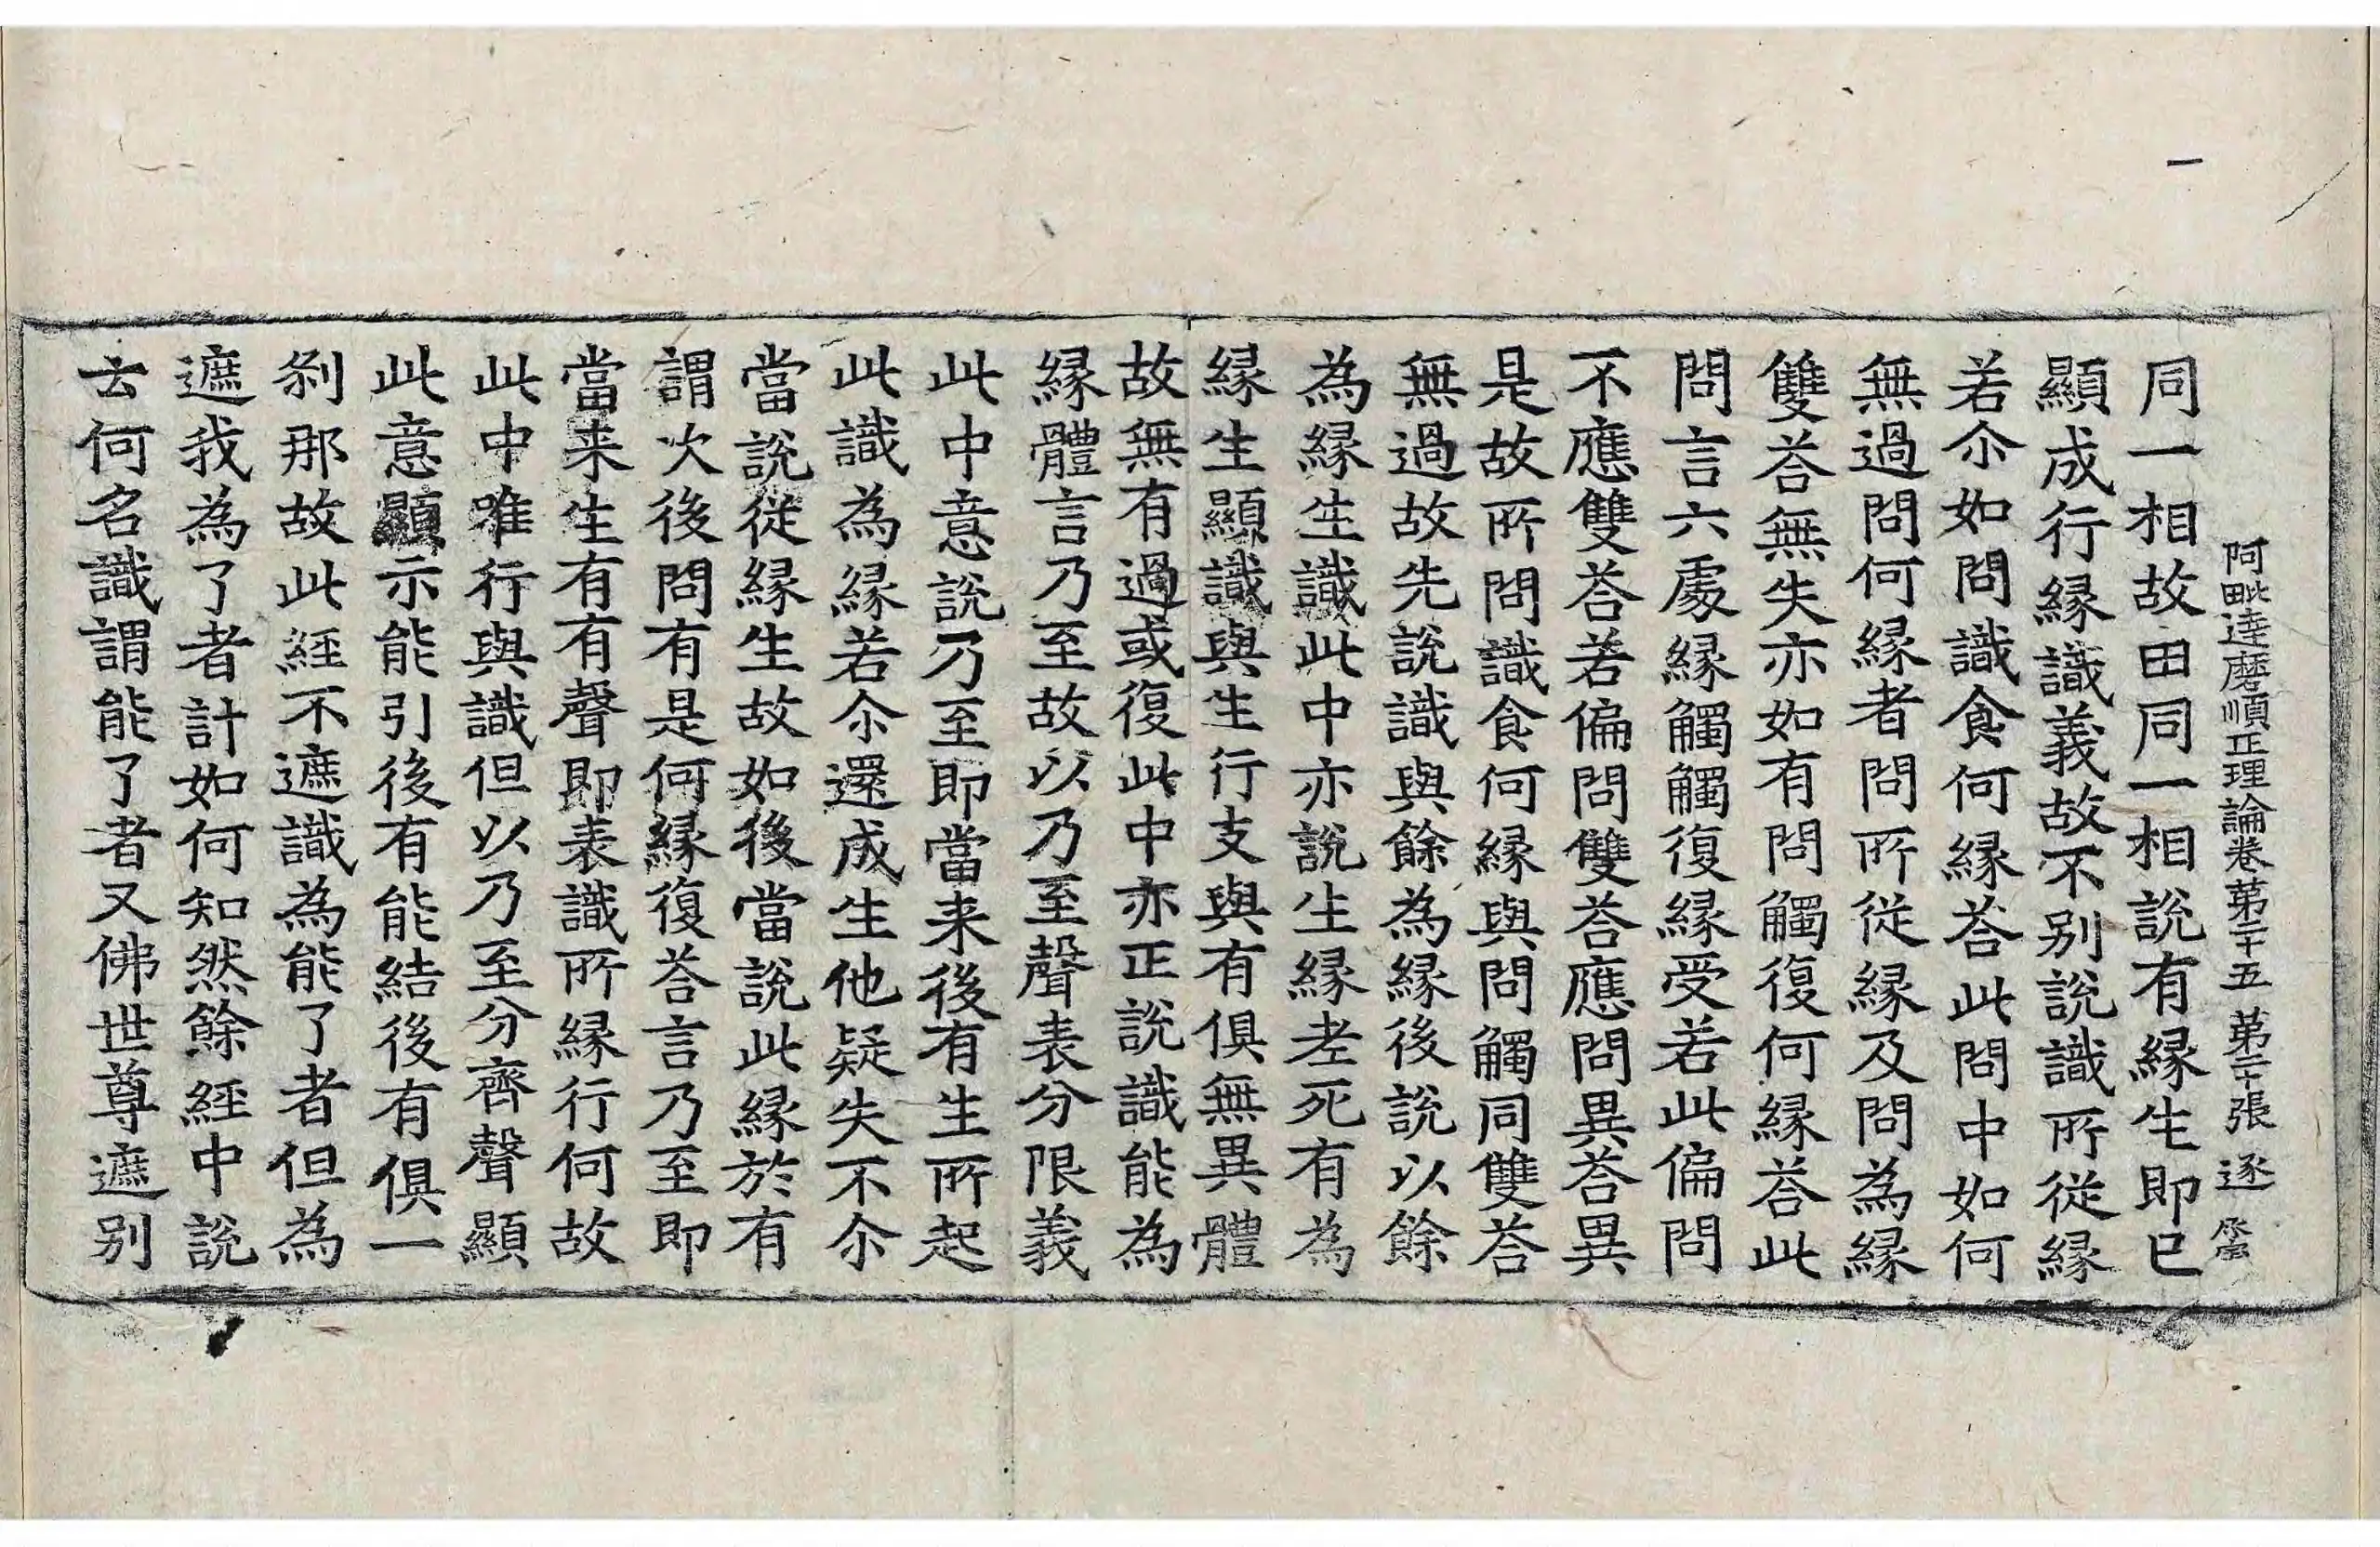 阿毗達磨順正理論卷第二十五 第二十張 逐
同一相故田同一相說有緣生即已
顯成行緣識義故不别說識所從緣
若尒如問識食何緣荅此問中如何
無過問何緣者問所從緣及問為緣
雙荅無失亦如有問觸復何緣荅此
問言六處緣觸觸復緣受若此偏問
不應雙荅若偏問雙荅應問異荅異
是故所問問識食何緣與問觸同雙荅
無過故先說識與餘為緣後說以餘
為緣生識此中亦說生緣老死有為
緣生顯識與生行支與有俱無異體
故無有過或復此中亦正說識能為
緣體言乃至故以乃至聲表分限義
此中意說乃至即當来後有生所起
此識為緣若尒還成生他疑失不尒
當說從緣生故如後當說此緣於有
謂次後問有是何緣復荅言乃至即
當来生有有聲即表識所緣行何故
此中唯行與識但以乃至分齊聲顯
此意顯示能引後有能結後有俱一
剎那故此經不遮識為能了者但為
遮我為了者計如何知然餘經中說
云何名識謂能了者又佛世尊遮别